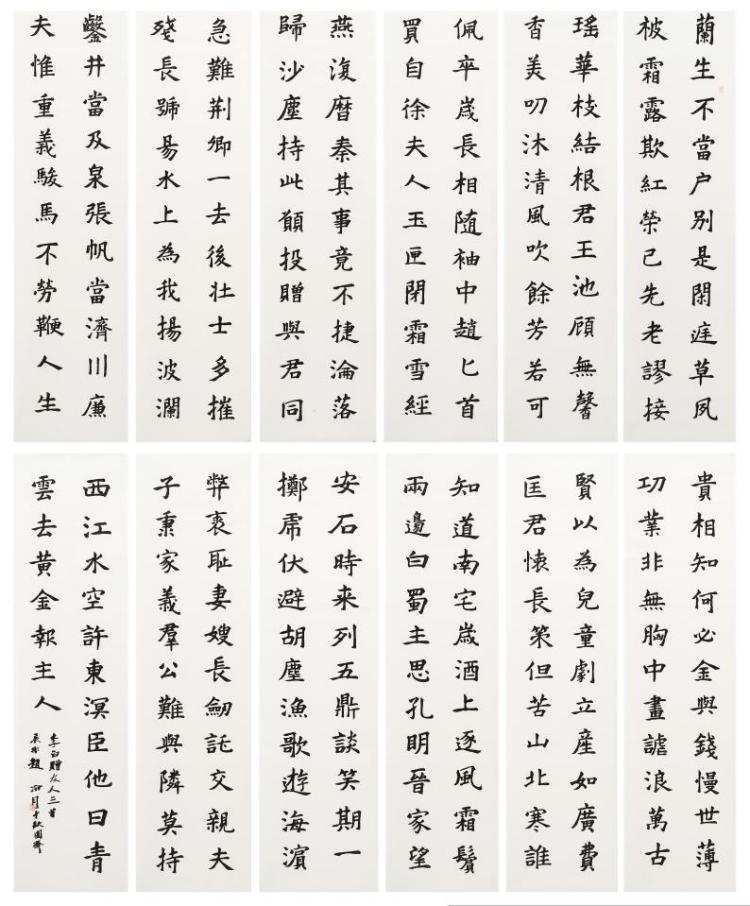 蘭生不當户別是閑庭草夙
被霜露欺紅榮已先老謬接
瑶華枝結根君王池顧無馨
香美叨沐清風吹餘芳若可
佩卒歲長相随袖中趙匕首
買自徐夫人玉匣閉霜雪經
燕復曆秦其事竟不捷淪落
歸沙塵持此願投贈與君同
急難荆卿一去後壮士多摧
殘長號易水上為我揚波瀾
鑿井當及泉張帆當濟川廉
夫惟重義駿馬不勞鞭人生
貴相知何必金與錢慢世薄
功業非無胸中畫謔浪萬古
賢以為兒童劇立産如廣費
匡君懷長策但苦山北寒誰
知道南宅歲酒上逐風霜鬢
兩邊白蜀主思孔明晉家望
安石時来列五鼎談笑期一
擲虎伏避胡塵漁歌遊海濱
弊裘耻妻嫂長劒託交親夫
子秉家義羣公難與隣莫持
西江水空許東溟臣他日青
雲去黄金報主人
李白贈友人三首